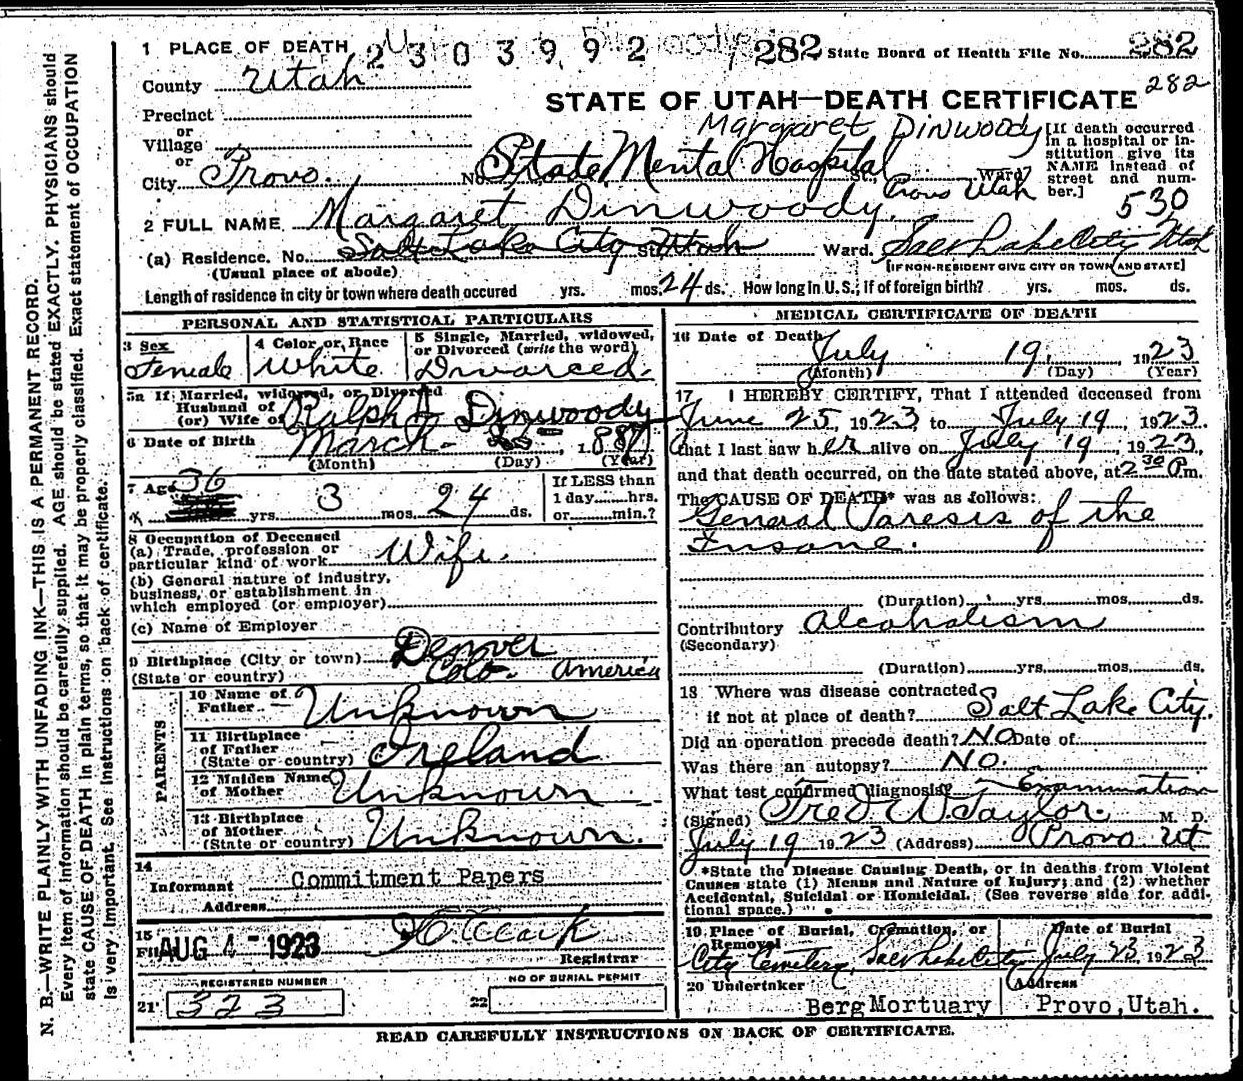 N. B.—WRITE PLAINLY WITH UNFADING INK—THIS IS A PERMANENT RECORD.
Every item of information should be carefully supplied. AGE should be stated EXACTLY. PHYSICIANS should
state CAUSE OF DEATH in plain terms, so that it may be properly classified. Exact statement of OCCUPATION
is very important. See instructions on back of certificate.
1 PLACE OF DEATH
2303992
282 State Board of Health File No. 282
County Utah
282
STATE OF UTAH—DEATH CERTIFICATE
Precinct
or
Village
or
City Provo. No. State Mental Hospital St., Ward
Margaret Dinwoody
Provo Utah
[If death occurred
in a hospital or in-
stitution give its
NAME instead of
street and num-
ber.]
530
2 FULL NAME Margaret Dinwoody.
(a) Residence. No. Salt Lake City St. Utah Ward. Salt Lake City Utah
(Usual place of abode)
[IF NON-RESIDENT GIVE CITY OR TOWN AND STATE]
Length of residence in city or town where death occured yrs. mos. 24 ds. How long in U.S.; if of foreign birth? yrs. mos. ds.
PERSONAL AND STATISTICAL PARTICULARS
3 Sex
Female
4 Color or Race
White
5 Single, Married, widowed,
or Divorced (write the word)
Divorced.
5a If Married, widowed, or Divorced
Husband of
(or) Wife of Ralph Dinwoody
6 Date of Birth March 1887
(Month) (Day) (Year)
7 Age 36 yrs. 3 mos. 24 ds.
If LESS than
1 day hrs.
or min.?
8 Occupation of Deceased
(a) Trade, profession or
particular kind of work Wife.
(b) General nature of industry,
business, or establishment in
which employed (or employer)
(c) Name of Employer
9 Birthplace (City or town) Denver
(State or country) Colo. America
PARENTS
10 Name of
Father Unknown
11 Birthplace
of Father
(State or country) Ireland
12 Maiden Name
of Mother Unknown
13 Birthplace
of Mother
(State or country) Unknown.
14
Informant Commitment Papers
Address
15
Filed AUG 4 - 1923
Registrar
REGISTERED NUMBER
21 323
NO OF BURIAL PERMIT
22
MEDICAL CERTIFICATE OF DEATH
16 Date of Death July 19, 1923
(Month) (Day) (Year)
17 I HEREBY CERTIFY, That I attended deceased from
June 25, 1923 to July 19, 1923.
that I last saw her alive on July 19, 1923,
and that death occurred, on the date stated above, at 2 30 P.m.
The CAUSE OF DEATH* was as follows:
General Paresis of the
Insane.
(Duration) yrs. mos. ds.
Contributory Alcoholism
(Secondary)
(Duration) yrs. mos. ds.
18 Where was disease contracted
if not at place of death? Salt Lake City.
Did an operation precede death? NO Date of
Was there an autopsy? No.
What test confirmed diagnosis? Examination
(Signed) Fred W. Taylor. M. D.
July 19 1923 (Address) Provo Ut
*State the Disease Causing Death, or in deaths from Violent
Causes state (1) Means and Nature of Injury; and (2) whether
Accidental, Suicidal or Homicidal. (See reverse side for addi-
tional space.)
19 Place of Burial, Cremation, or
Removal
City Cemetery, Salt Lake City
Date of Burial
July 23, 1923
20 Undertaker
Berg Mortuary
Address
Provo, Utah.
READ CAREFULLY INSTRUCTIONS ON BACK OF CERTIFICATE.